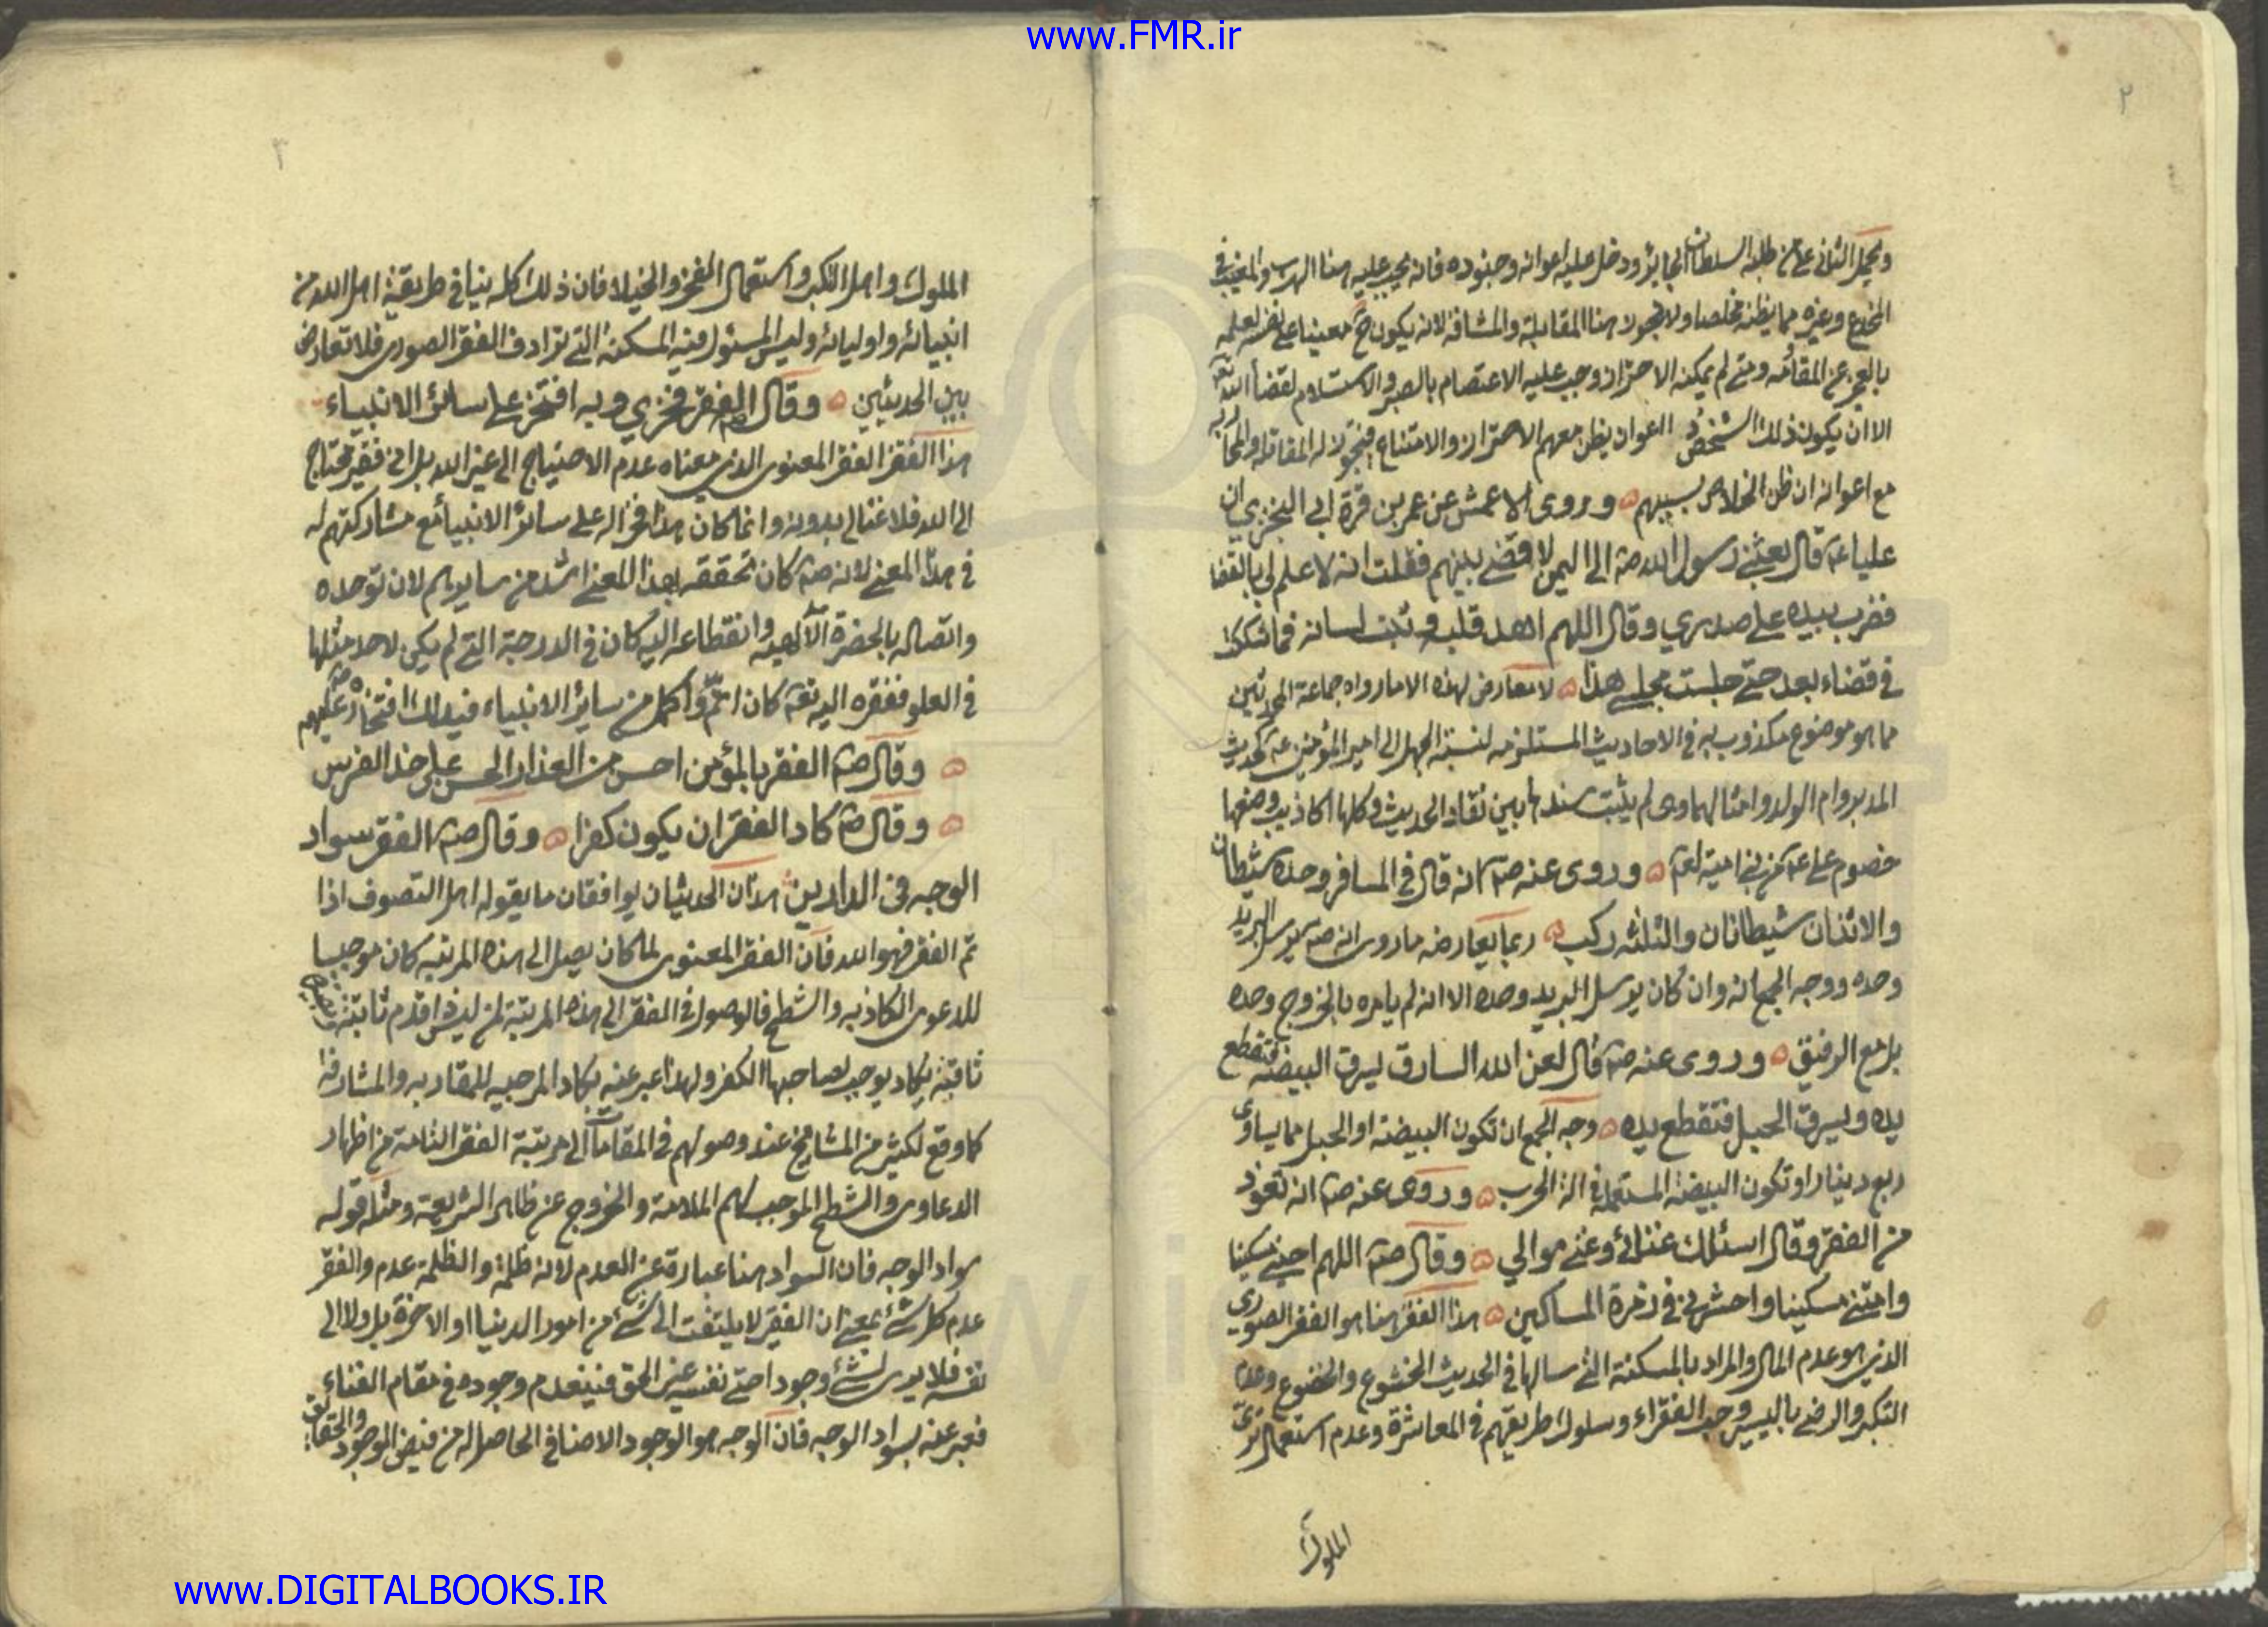 www.FMR.ir
٢
ويحمل الثانى على من طلبه السلطان الجاير ودخل عليه اعوانه وجنوده فانه يجب عليه هنا الهرب والمغيب فى
المخدع وغيره مما يظنه مخلصا ولا يجوز هنا المقابلة والمشاقة لانه يكون ح معينا على نفسه لعلمه
بالعجز عن المقاومة ومتى لم يمكنه الاحتراز وجب عليه الاعتصام بالصبر والاستسلام لقضاء الله تعالى
الا ان يكون ذلك الشخص ذو اعوان يظن معهم الاحتراز والامتناع فيجوز له المقاتلة والمحاربة
مع اعوانه ان ظن الخلاص بسببهم وروى الاعمش عن عمر بن قرة ابى البخترى ان
عليا عم قال بعثنى رسول الله صم الى اليمن لاقضى بينهم فقلت انه لا علم لى بالقضا
فضرب بيده على صدرى وقال اللهم اهد قلبه وثبت لسانه فما شككت
فى قضاء بعد حتى جلست مجلسى هذا لا معارض لهذه الاما رواه جماعة المحدثين
مما هو موضوع مكذوب به فى الاحاديث المستلزمه لنسبة الجهل الى امير المؤمنين عم كحديث
المدبر وام الولد وامثالهما وى لم يثبت سندها بين نقاد الحديث وكلها اكاذيب وضعها
خصوم على عم من بنى امية لعنهم وروى عنه صم انه قال فى المسافر وحده شيطان
والاثنان شيطانان والثلثه ركب ربما يعارضه ما روى انه صم يرسل البريد
وحده ووجه الجمع انه وان كان يرسل البريد وحده الا انه لم يامره بالخروج وحده
بل مع الرفيق وروى عنه صم قال لعن الله السارق يسرق البيضة فتقطع
يده ويسرق الحبل فتقطع يده وجه الجمع ان تكون البيضة او الحبل مما يساوى
ربع دينار او تكون البيضة المستعملة فى الة الحرب وروى عنه صم انه تعوذ
من الفقر وقال اسئلك غنائى وغنى موالي وقال صم اللهم احينى مسكينا
وامتنى مسكينا واحشرنى فى زمرة المساكين هذا الفقر هنا هو الفقر الصورى
الذى هو عدم المال والمراد بالمسكنة التى سالها فى الحديث الخشوع والخضوع وعدم
التكبر والرضى باليسير وحب الفقراء وسلوك طريقهم فى المعاشرة وعدم استعمال زى
الملوك
٣
الملوك واهل التكبر واستعمال الفخر والخيلا فان ذلك كله ينافى طريقة اهل الله من
انبيائه واوليائه وليس المسئول فيه المسكنة التى ترادف الفقر الصورى فلا تعارض
بين الحديثين وقال صم الفقر فخري وبه افتخر على سائر الانبياء
هذا الفقر الفقر المعنوى الذى معناه عدم الاحتياج الى غير الله بل انى فقير محتاج
الى الله فلا غنا لى بدونه وانما كان هذا فخرا له على سائر الانبياء مع مشاركتهم له
فى هذا المعنى لانه صم كان تحققه بهذا المعنى اشد من سايرهم لان توحده
واتصاله بالحضرة الآلهيه وانقطاعه اليه كان فى الدرجة التى لم يكن لاحد مثلها
فى العلو ففقره اليه تعم كان اتم واكمل من ساير الانبياء فبذلك افتخاره صم عليهم
وقال صم الفقر بالمؤمن احسن من العذار الحسن على خد الفرس
وقال صم كاد الفقر ان يكون كفرا وقال صم الفقر سواد
الوجه فى الدارين هذان الحديثان يوافقان ما يقوله اهل التصوف اذا
تم الفقر فهو الله فان الفقر المعنوى لما كان يصل الى هذه المرتبه كان موجبا
للدعوى الكاذبه والشطح فالوصول فى الفقر الى هذه المرتبة لمن ليس له قدم ثابتة
ثاقبة يكاد يوجب لصاحبها الكفر ولهذا عبر عنه بكاد الموجبه للمقاربه والمشارفة
كما وقع لكثير من المشايخ عند وصولهم فى المقامات الى مرتبة الفقر التامة من اظهار
الدعاوى والشطح الموجب لهم الملامة والخروج عن ظاهر الشريعة ومثله قوله
سواد الوجه فان السواد هنا عبارة عن العدم لانه ظلمة والظلمة عدم والفقر
عدم كل شئ بمعنى ان الفقير لا يلتفت الى شئ من امور الدنيا او الاخرة بل ولا الى
نفسه فلا يرى لشئ وجودا حتى نفسه غير الحق فينعدم وجوده فى مقام الفناء
فعبر عنه بسواد الوجه فان الوجه هو الوجود الاضافى الحاصل له من فيض الموجود الحقانى
www.DIGITALBOOKS.IR